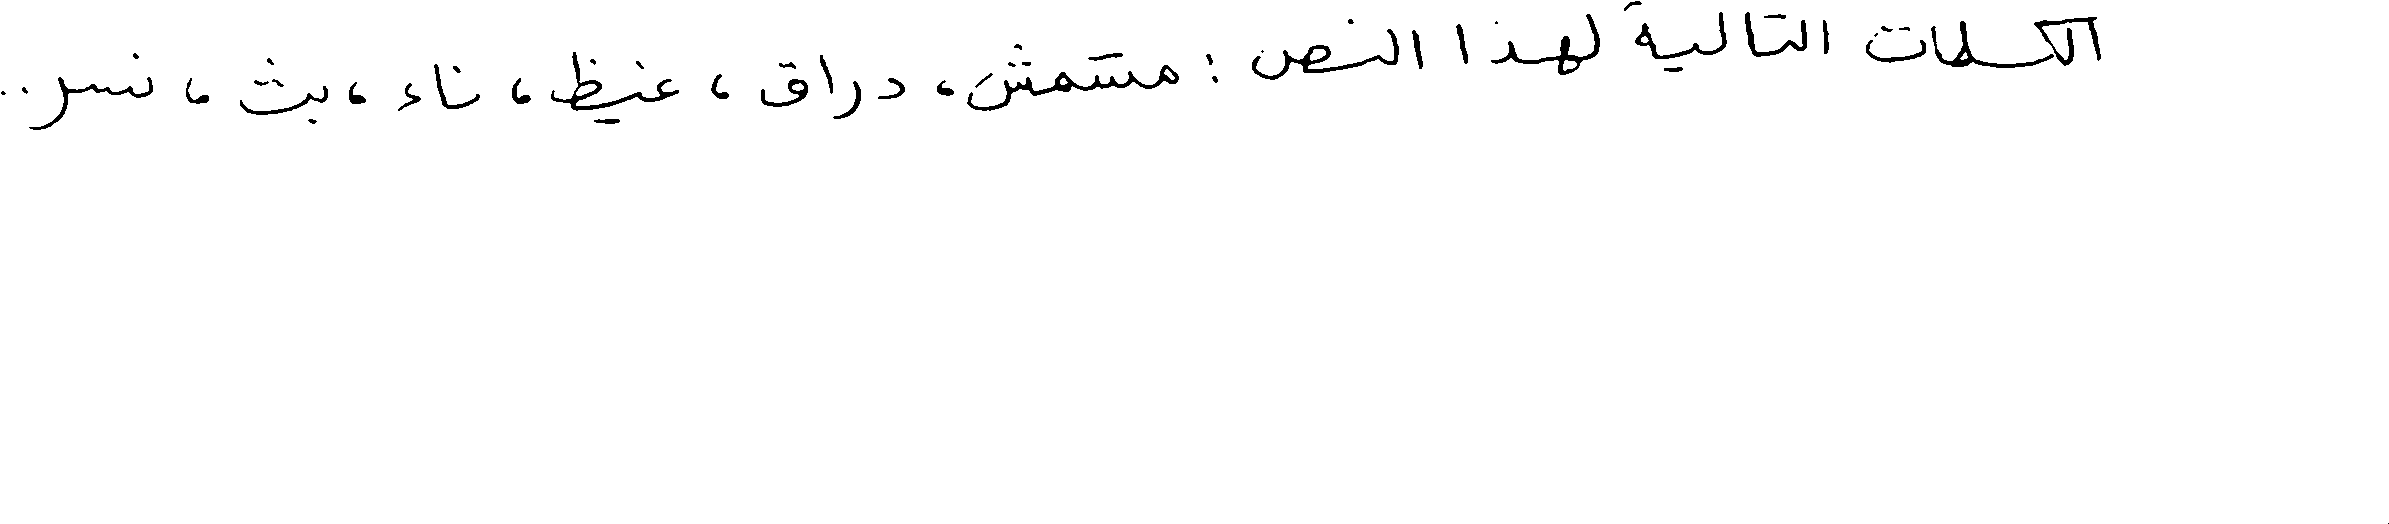 الكلمات التالية لهذا النص : مشمش، دراق، غيظ، ناء، بث، نسر..